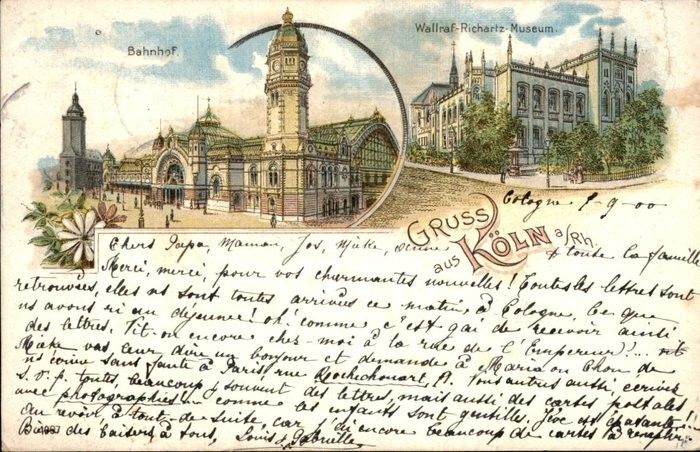 Bahnhof.
Wallraf-Richartz-Museum.
Gruss
aus Köln a/Rh.
Cologne 9-00
Chers Papa, Maman, Jos, Mieke, & toute la famille
Merci, merci, pour vos charmantes nouvelles! Toutes les lettres sont
retrouvées, elles ns sont toutes arrivées ce matin, à Cologne. Ce que
ns avons ri au déjeuner! oh! comme c'est gai de recevoir ainsi
des lettres. Vit-on encore chez-moi à la rue de l'Empereur?...
Mieke vas leur dire un bonjour et demande à Maria ou Chou de
ns écrire sans faute à Paris rue Rochechouart, Vous autres aussi, écrivez
s.v.p. toutes, beaucoup & souvent des lettres, mais aussi des cartes postales!
avec photographies comme les enfants sont gentilles. José est épatante
Au revoir à tout-de-suite, car j'ai encore beaucoup de cartes à remplir.
Bien des baisers à tous, Louis & Gabrielle